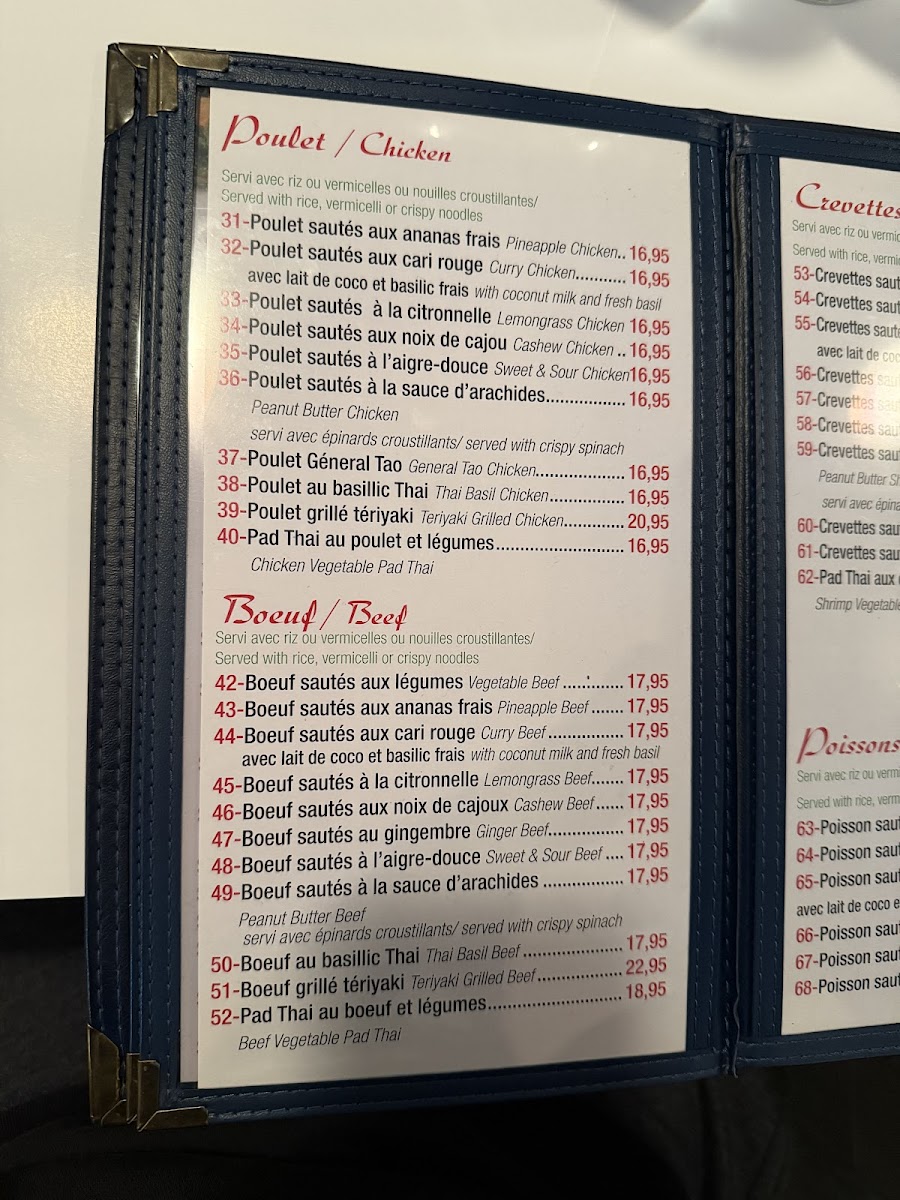 Poulet / Chicken
Servi avec riz ou vermicelles ou nouilles croustillantes/
Served with rice, vermicelli or crispy noodles
31-Poulet sautés aux ananas frais Pineapple Chicken.. 16,95
32-Poulet sautés aux cari rouge Curry Chicken........... 16,95
avec lait de coco et basilic frais with coconut milk and fresh basil
33-Poulet sautés à la citronnelle Lemongrass Chicken 16,95
34-Poulet sautés aux noix de cajou Cashew Chicken .. 16,95
35-Poulet sautés à l'aigre-douce Sweet & Sour Chicken16,95
36-Poulet sautés à la sauce d'arachides................. 16,95
Peanut Butter Chicken
servi avec épinards croustillants/ served with crispy spinach
37-Poulet Géneral Tao General Tao Chicken................... 16,95
38-Poulet au basillic Thai Thai Basil Chicken................ 16,95
39-Poulet grillé tériyaki Teriyaki Grilled Chicken............. 20,95
40-Pad Thai au poulet et légumes........................... 16,95
Chicken Vegetable Pad Thai
Boeuf / Beef
Servi avec riz ou vermicelles ou nouilles croustillantes/
Served with rice, vermicelli or crispy noodles
42-Boeuf sautés aux légumes Vegetable Beef ............. 17,95
43-Boeuf sautés aux ananas frais Pineapple Beef ....... 17,95
44-Boeuf sautés aux cari rouge Curry Beef................ 17,95
avec lait de coco et basilic frais with coconut milk and fresh basil
45-Boeuf sautés à la citronnelle Lemongrass Beef....... 17,95
46-Boeuf sautés aux noix de cajoux Cashew Beef ...... 17,95
47-Boeuf sautés au gingembre Ginger Beef................ 17,95
48-Boeuf sautés à l'aigre-douce Sweet & Sour Beef .... 17,95
49-Boeuf sautés à la sauce d'arachides ................. 17,95
Peanut Butter Beef
servi avec épinards croustillants/ served with crispy spinach
50-Boeuf au basillic Thai Thai Basil Beef ...................... 17,95
51-Boeuf grillé tériyaki Teriyaki Grilled Beef.................. 22,95
52-Pad Thai au boeuf et légumes............................. 18,95
Beef Vegetable Pad Thai
Crevettes
Servi avec riz ou
Served with rice,
53-Crevettes
54-Crevettes
55-Crevettes
avec lait de
56-Crevettes
57-Crevettes
58-Crevettes
59-Crevettes
Peanut Butter
servi avec
60-Crevettes
61-Crevettes
62-Pad Thai aux
Shrimp
Poissons
Servi avec riz ou
Served with rice,
63-Poisson
64-Poisson
65-Poisson
avec lait de coco
66-Poisson
67-Poisson
68-Poisson